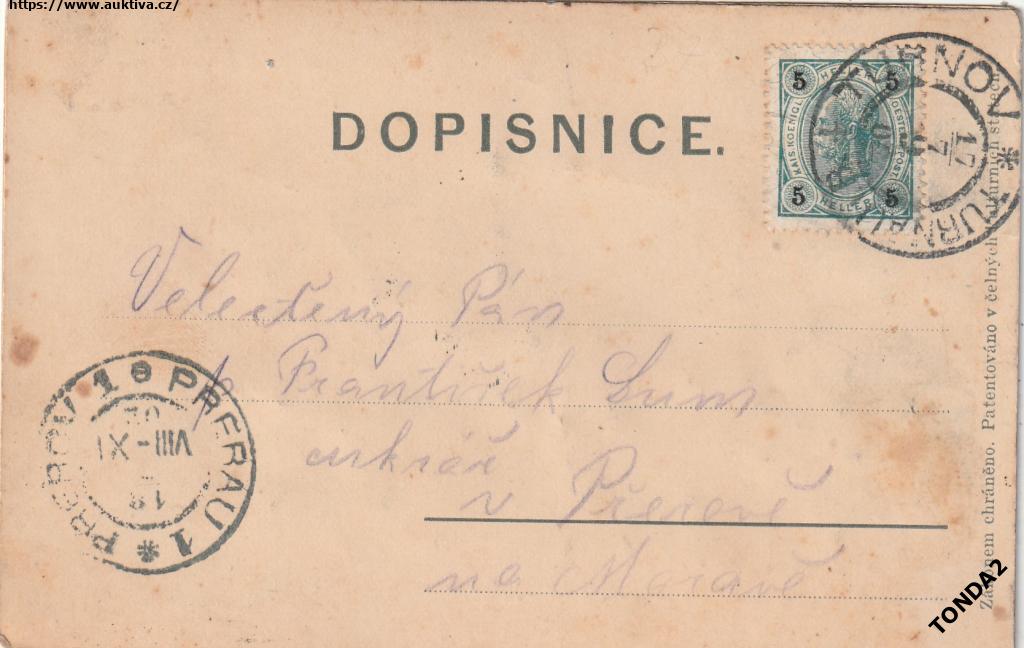 https://www.auktiva.cz/
DOPISNICE.
5 HELLER 5
KAIS. KOENIGL. OESTERR. POST
5 HELLER 5
TURNOV * TURNAU
17
7
Velectěný Pán
p František Sum
cukrář
v Přerově
na Moravě
PŘEROV 1 PRERAU 1 *
VIII-XI
02
18
Zákonem chráněno. Patentováno v čelných kulturních státech
TONDA2